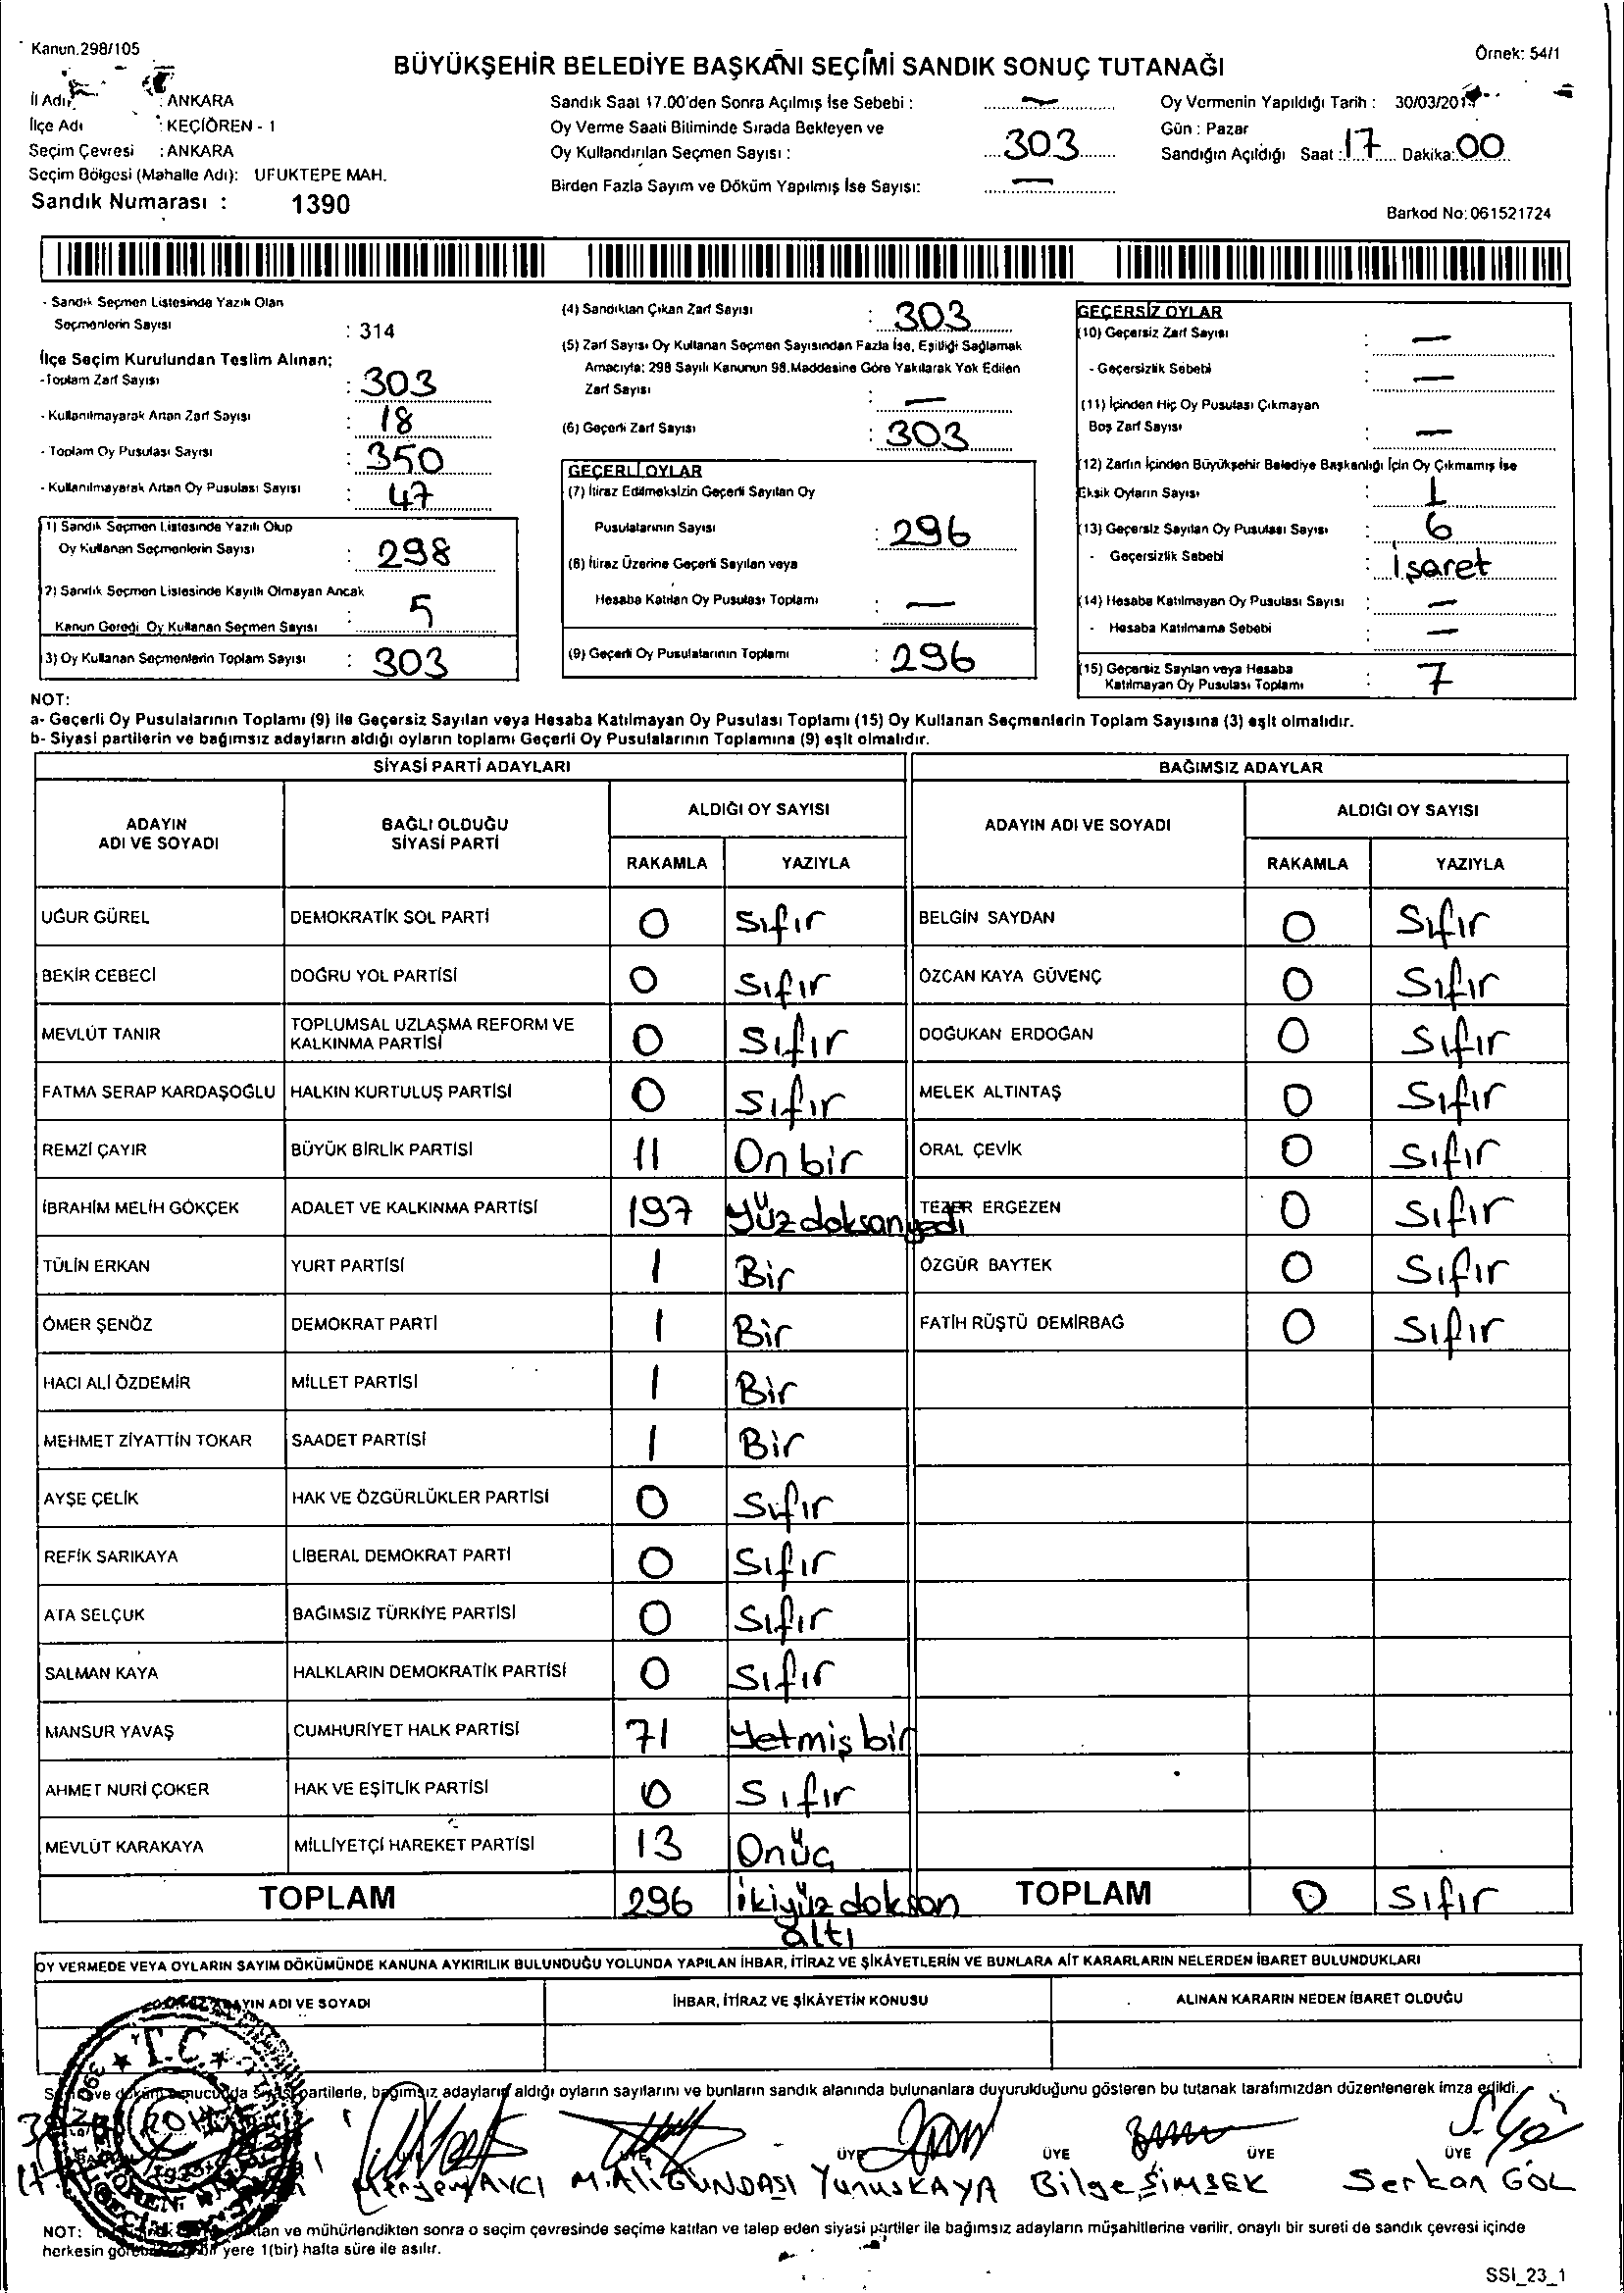 Kanun.298/105
BÜYÜKŞEHİR BELEDİYE BAŞKANI SEÇİMİ SANDIK SONUÇ TUTANAĞI
Örnek: 54/1
İl Adı : ANKARA
İlçe Adı : KEÇİÖREN - 1
Seçim Çevresi : ANKARA
Seçim Bölgesi (Mahalle Adı): UFUKTEPE MAH.
Sandık Numarası : 1390
Sandık Saat 17.00'den Sonra Açılmış İse Sebebi : —
Oy Verme Saati Bitiminde Sırada Bekleyen ve
Oy Kullandırılan Seçmen Sayısı : 303
Birden Fazla Sayım ve Döküm Yapılmış İse Sayısı: —
Oy Vermenin Yapıldığı Tarih : 30/03/2014
Gün : Pazar
Sandığın Açıldığı Saat : 17 Dakika: 00
Barkod No: 061521724
- Sandık Seçmen Listesinde Yazılı Olan
Seçmenlerin Sayısı : 314
İlçe Seçim Kurulundan Teslim Alınan;
-Toplam Zarf Sayısı : 303
- Kullanılmayarak Artan Zarf Sayısı : 18
- Toplam Oy Pusulası Sayısı : 350
- Kullanılmayarak Artan Oy Pusulası Sayısı : 47
1) Sandık Seçmen Listesinde Yazılı Olup
Oy Kullanan Seçmenlerin Sayısı : 298
2) Sandık Seçmen Listesinde Kayıtlı Olmayan Ancak
Kanun Gereği Oy Kullanan Seçmen Sayısı : 5
3) Oy Kullanan Seçmenlerin Toplam Sayısı : 303
(4) Sandıktan Çıkan Zarf Sayısı : 303
(5) Zarf Sayısı Oy Kullanan Seçmen Sayısından Fazla İse, Eşitliği Sağlamak
Amacıyla; 298 Sayılı Kanunun 98.Maddesine Göre Yakılarak Yok Edilen
Zarf Sayısı : —
(6) Geçerli Zarf Sayısı : 303
GEÇERLİ OYLAR
(7) İtiraz Edilmeksizin Geçerli Sayılan Oy
Pusulalarının Sayısı : 296
(8) İtiraz Üzerine Geçerli Sayılan veya
Hesaba Katılan Oy Pusulası Toplamı : —
(9) Geçerli Oy Pusulalarının Toplamı : 296
GEÇERSİZ OYLAR
(10) Geçersiz Zarf Sayısı : —
- Geçersizlik Sebebi : —
(11) İçinden Hiç Oy Pusulası Çıkmayan
Boş Zarf Sayısı : —
(12) Zarfın İçinden Büyükşehir Belediye Başkanlığı İçin Oy Çıkmamış İse
Eksik Oyların Sayısı : 1
(13) Geçersiz Sayılan Oy Pusulası Sayısı : 6
- Geçersizlik Sebebi : İşaret
(14) Hesaba Katılmayan Oy Pusulası Sayısı : —
- Hesaba Katılmama Sebebi : —
(15) Geçersiz Sayılan veya Hesaba
Katılmayan Oy Pusulası Toplamı : 7
NOT:
a- Geçerli Oy Pusulalarının Toplamı (9) ile Geçersiz Sayılan veya Hesaba Katılmayan Oy Pusulası Toplamı (15) Oy Kullanan Seçmenlerin Toplam Sayısına (3) eşit olmalıdır.
b- Siyasi partilerin ve bağımsız adayların aldığı oyların toplamı Geçerli Oy Pusulalarının Toplamına (9) eşit olmalıdır.
SİYASİ PARTİ ADAYLARI
ADAYIN ADI VE SOYADI
BAĞLI OLDUĞU SİYASİ PARTİ
ALDIĞI OY SAYISI
RAKAMLA YAZIYLA
UĞUR GÜREL DEMOKRATİK SOL PARTİ 0 Sıfır
BEKİR CEBECİ DOĞRU YOL PARTİSİ 0 Sıfır
MEVLÜT TANIR TOPLUMSAL UZLAŞMA REFORM VE KALKINMA PARTİSİ 0 Sıfır
FATMA SERAP KARDAŞOĞLU HALKIN KURTULUŞ PARTİSİ 0 Sıfır
REMZİ ÇAYIR BÜYÜK BİRLİK PARTİSİ 11 Onbir
İBRAHİM MELİH GÖKÇEK ADALET VE KALKINMA PARTİSİ 197 Yüzdoksanyedi
TÜLİN ERKAN YURT PARTİSİ 1 Bir
ÖMER ŞENÖZ DEMOKRAT PARTİ 1 Bir
HACI ALİ ÖZDEMİR MİLLET PARTİSİ 1 Bir
MEHMET ZİYATTİN TOKAR SAADET PARTİSİ 1 Bir
AYŞE ÇELİK HAK VE ÖZGÜRLÜKLER PARTİSİ 0 Sıfır
REFİK SARIKAYA LİBERAL DEMOKRAT PARTİ 0 Sıfır
ATA SELÇUK BAĞIMSIZ TÜRKİYE PARTİSİ 0 Sıfır
SALMAN KAYA HALKLARIN DEMOKRATİK PARTİSİ 0 Sıfır
MANSUR YAVAŞ CUMHURİYET HALK PARTİSİ 71 Yetmişbir
AHMET NURİ ÇOKER HAK VE EŞİTLİK PARTİSİ 0 Sıfır
MEVLÜT KARAKAYA MİLLİYETÇİ HAREKET PARTİSİ 13 Onüç
TOPLAM 296 İkiyüzdoksan altı
BAĞIMSIZ ADAYLAR
ADAYIN ADI VE SOYADI
ALDIĞI OY SAYISI
RAKAMLA YAZIYLA
BELGİN SAYDAN 0 Sıfır
ÖZCAN KAYA GÜVENÇ 0 Sıfır
DOĞUKAN ERDOĞAN 0 Sıfır
MELEK ALTINTAŞ 0 Sıfır
ORAL ÇEVİK 0 Sıfır
TEZER ERGEZEN 0 Sıfır
ÖZGÜR BAYTEK 0 Sıfır
FATİH RÜŞTÜ DEMİRBAĞ 0 Sıfır
TOPLAM 0 Sıfır
OY VERMEDE VEYA OYLARIN SAYIM DÖKÜMÜNDE KANUNA AYKIRILIK BULUNDUĞU YOLUNDA YAPILAN İHBAR, İTİRAZ VE ŞİKAYETLERİN VE BUNLARA AİT KARARLARIN NELERDEN İBARET BULUNDUKLARI
ADI VE SOYADI
İHBAR, İTİRAZ VE ŞİKAYETİN KONUSU
ALINAN KARARIN NEDEN İBARET OLDUĞU
T.C.
partilerle, bağımsız adayların aldığı oyların sayılarını ve bunların sandık alanında bulunanlara duyurulduğunu gösteren bu tutanak tarafımızdan düzenlenerek imza edildi.
ÜYE ÜYE ÜYE ÜYE
Meryem AVCI M.Ali GÜNDAŞI Yunus KAYA Bilge ŞİMŞEK Serkan GÖL
NOT: ve mühürlendikten sonra o seçim çevresinde seçime katılan ve talep eden siyasi partiler ile bağımsız adayların müşahitlerine verilir, onaylı bir sureti de sandık çevresi içinde
herkesin yere 1(bir) hafta süre ile asılır.
SSI_23_1